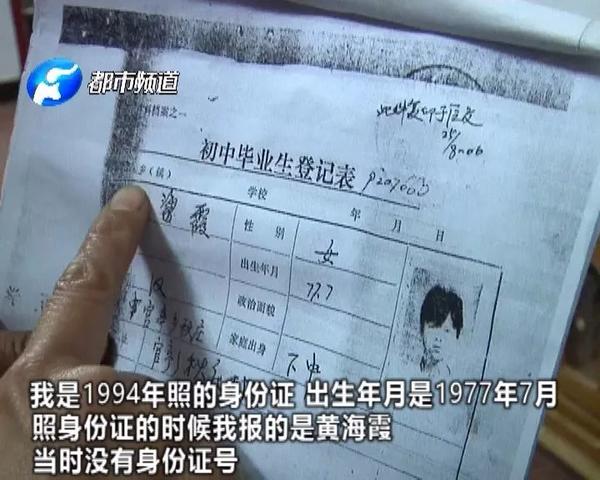 都市频道
料档案之一
25/8-06
初中毕业生登记表
乡(镇) 学校 年 月 日
霞 性别 女
出生年月 77.7
汉 政治面貌
家庭出身 下中
我是1994年照的身份证 出生年月是1977年7月
照身份证的时候我报的是黄海霞
当时没有身份证号